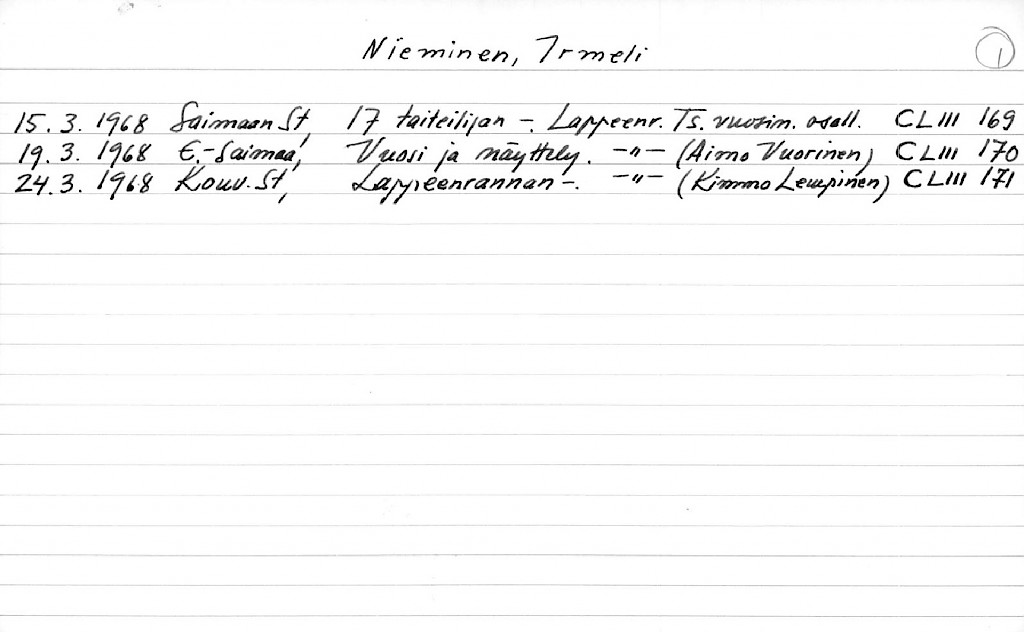 Nieminen, Irmeli 1
15.3.1968 Saimaan St, 17 taiteilijan -. Lappeenr. Ts. vuosin. osall. CLIII 169
19.3.1968 E.-Saimaa, Vuosi ja näyttely. -"- (Aimo Vuorinen) CLIII 170
24.3.1968 Kouv. St, Lappeenrannan -. -"- (Kimmo Lempinen) CLIII 171